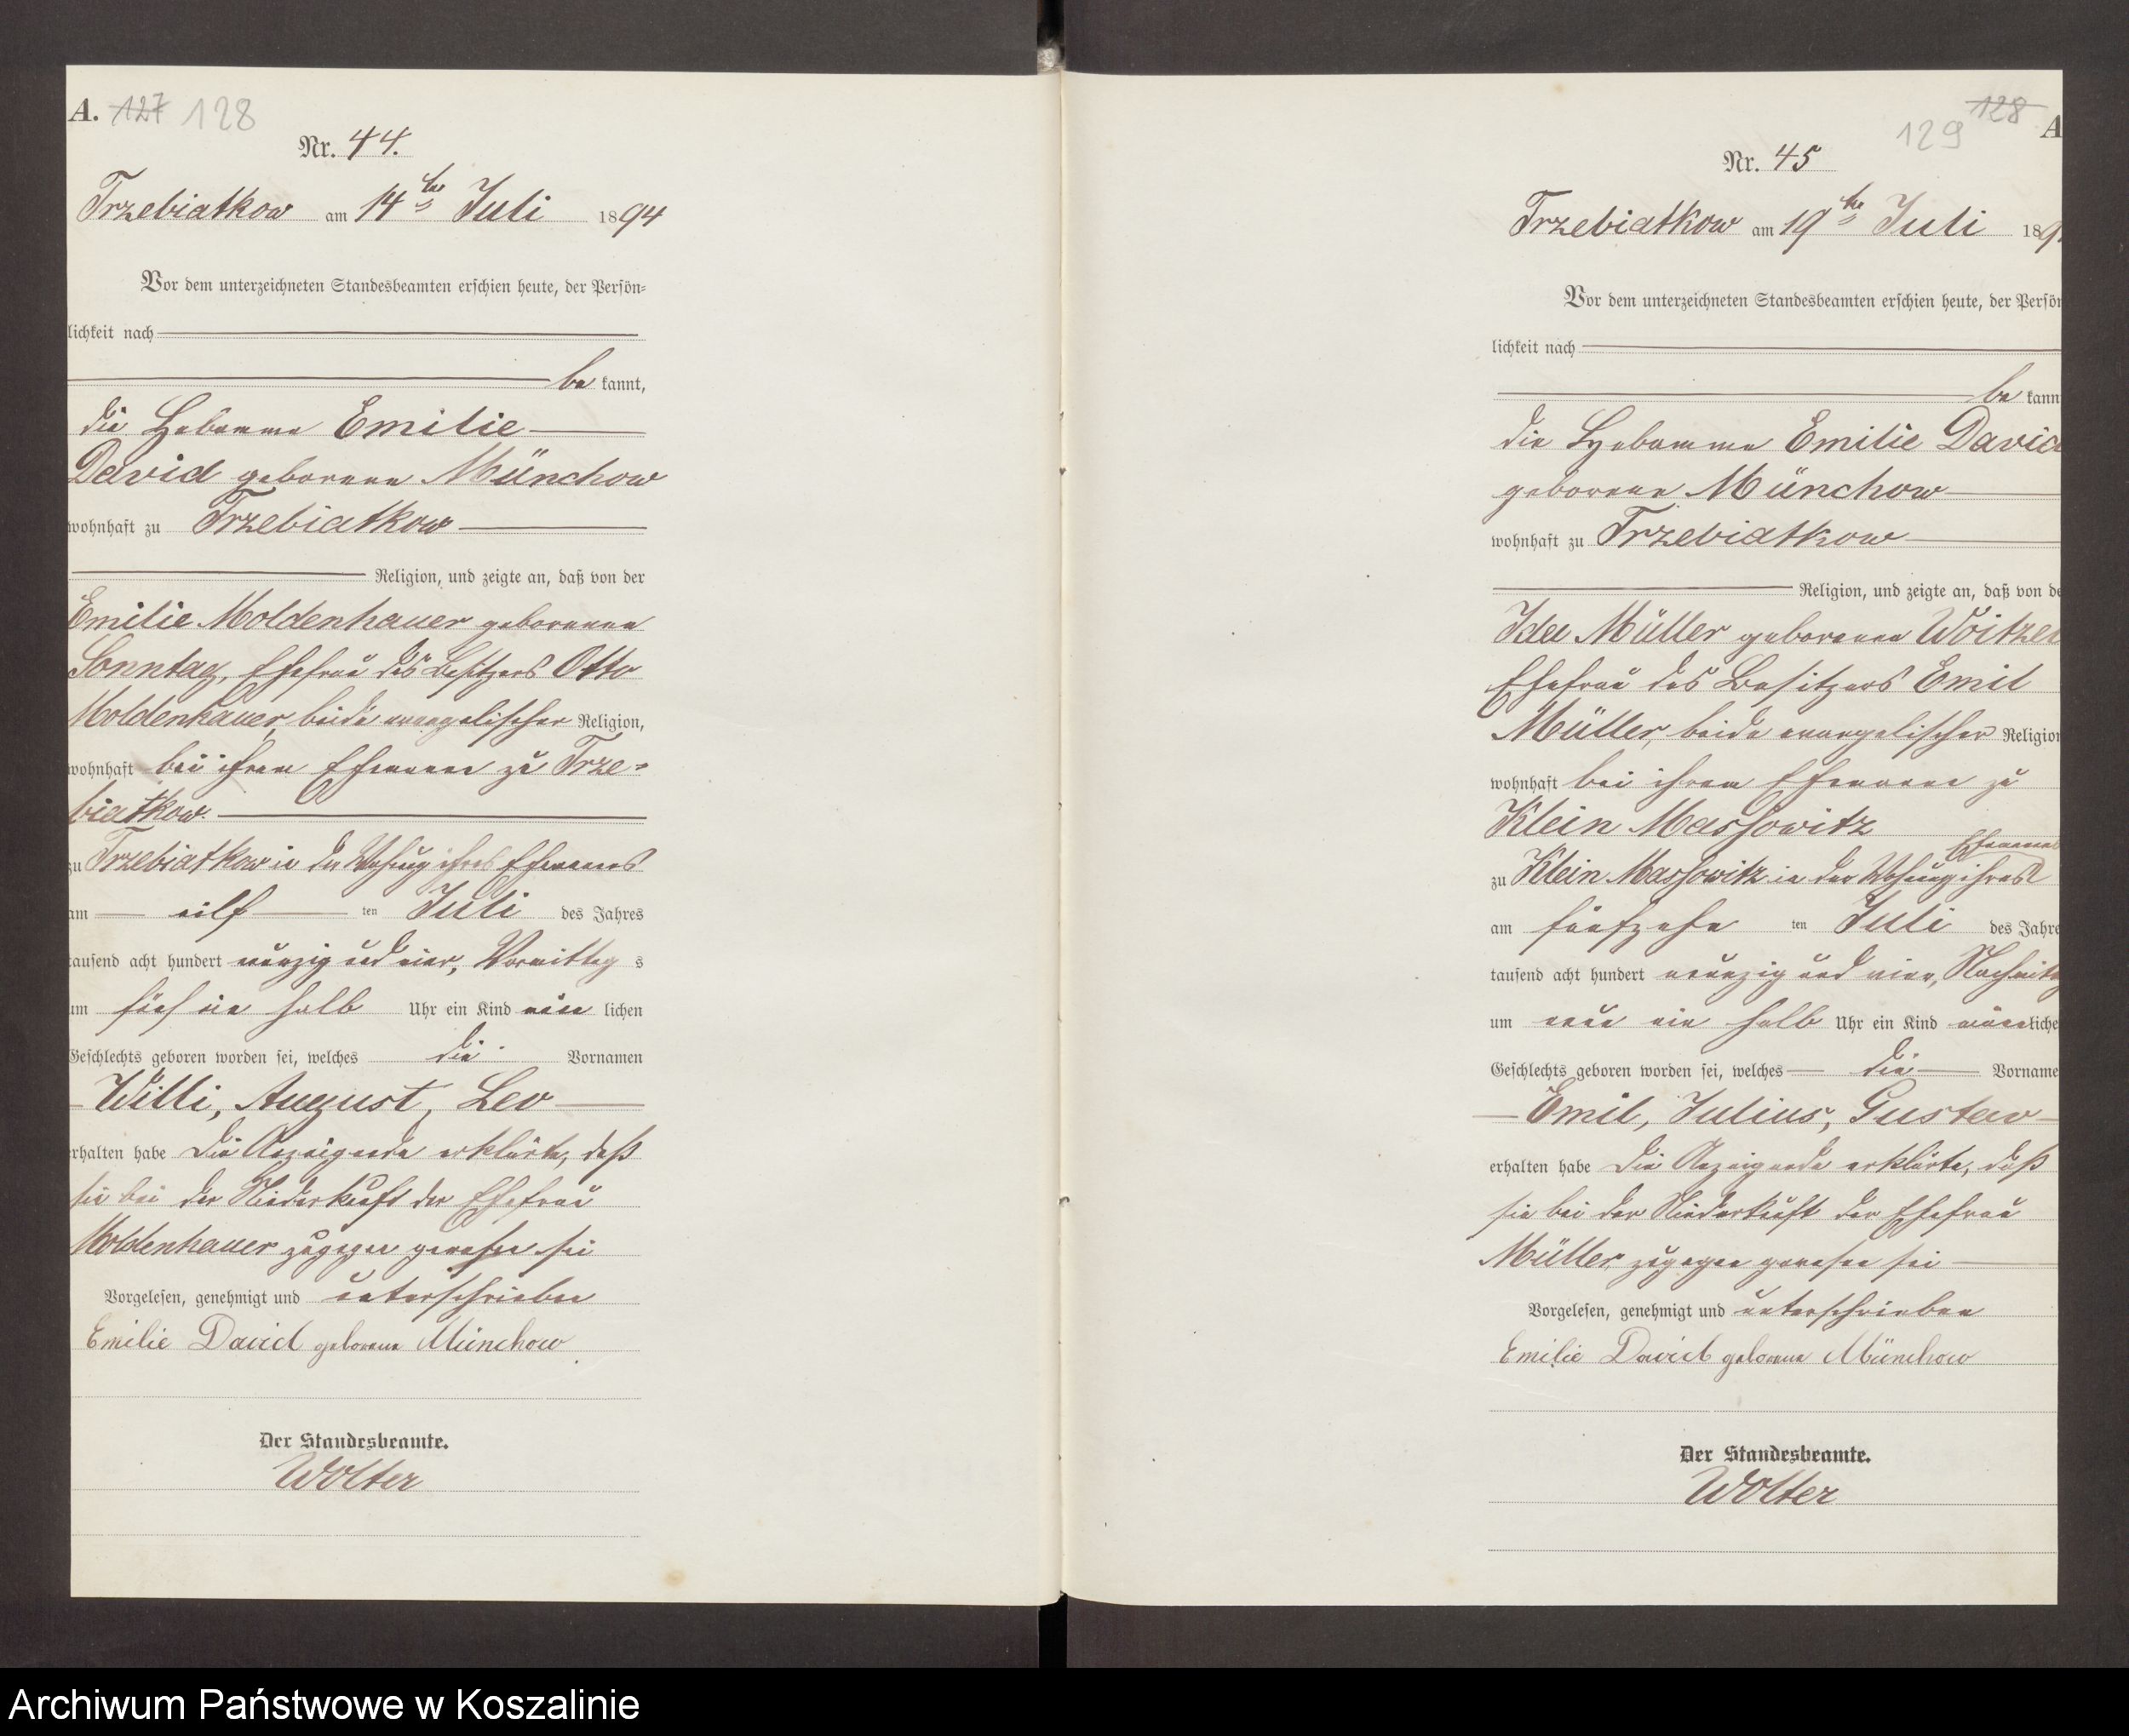 A. 127 128
Nr. 44.
Trzebiatkow am 14ten Juli 1894
Vor dem unterzeichneten Standesbeamten erschien heute, der Persön-
lichkeit nach
be kannt,
die Hebamme Emilie
David geborene Münchow
wohnhaft zu Trzebiatkow
Religion, und zeigte an, daß von der
Emilie Moldenhauer geborenen
Sonntag, Ehefrau des Besitzers Otto
Moldenhauer, beide evangelischer Religion,
wohnhaft bei ihrem Ehemanne zu Trze-
biatkow.
zu Trzebiatkow in der Wohnung ihres Ehemannes
am eilf ten Juli des Jahres
tausend acht hundert neunzig und vier, Vormittag s
um fünf ein halb Uhr ein Kind männ lichen
Geschlechts geboren worden sei, welches die Vornamen
Willi, August, Leo
erhalten habe Die Anzeigende erklärte, daß
sie bei der Niederkunft der Ehefrau
Moldenhauer zugegen gewesen sei
Vorgelesen, genehmigt und unterschrieben
Emilie David geborene Münchow
Der Standesbeamte.
Wolter
129 128 A
Nr. 45
Trzebiatkow am 19ten Juli 189
Vor dem unterzeichneten Standesbeamten erschien heute, der Persön
lichkeit nach
be kann
die Hebamme Emilie David
geborene Münchow
wohnhaft zu Trzebiatkow
Religion, und zeigte an, daß von de
Ida Müller geborenen
Ehefrau des Besitzers Emil
Müller, beide evangelischer Religion
wohnhaft bei ihrem Ehemanne zu
Klein Massowitz
zu Klein Massowitz in der Wohnung ihres Ehemannes
am fünfzehn ten Juli des Jahre
tausend acht hundert neunzig und vier, Nachmitta
um neun ein halb Uhr ein Kind männ liche
Geschlechts geboren worden sei, welches die Vorname
Emil, Julius, Gustav
erhalten habe Die Anzeigende erklärte, daß
sie bei der Niederkunft der Ehefrau
Müller zugegen gewesen sei
Vorgelesen, genehmigt und unterschrieben
Emilie David geborene Münchow
Der Standesbeamte.
Wolter
Archiwum Państwowe w Koszalinie